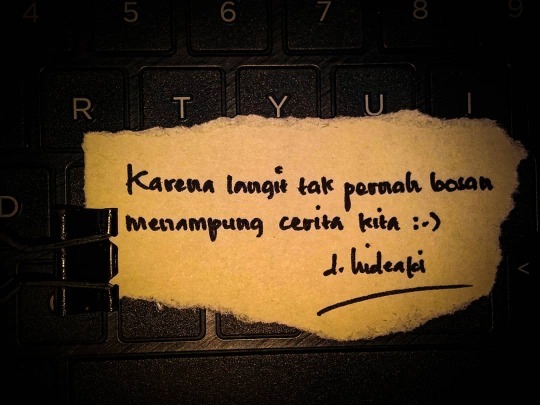 4 5 6 7 8 9
R T Y U I
D
Karena langit tak pernah bosan
menampung cerita kita :-)
d. hideaki
<